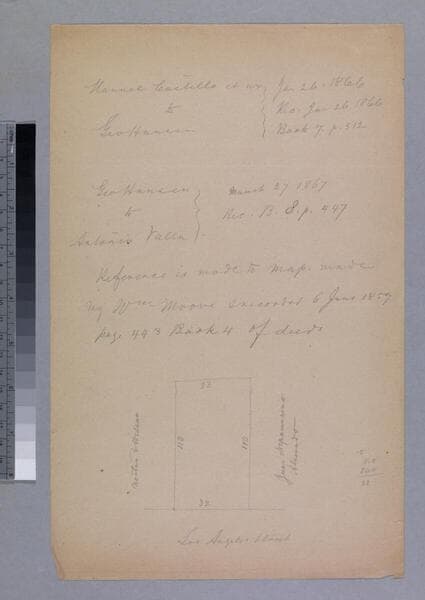 Manuel Castillo et ux } Jan 26. 1866
to } Rec. Jan 26 1866
Geo Hansen } Book 7. p. 512
Geo Hansen } March 27 1867
to } Rec. B. 8. p. 447
Antonio Valla }
Reference is made to map made
by Wm Moore recorded 6 June 1857
page 443 Book 4 of deeds
32
110
110
32
Juan Nepomucino
Alvarado
Los Angeles Street